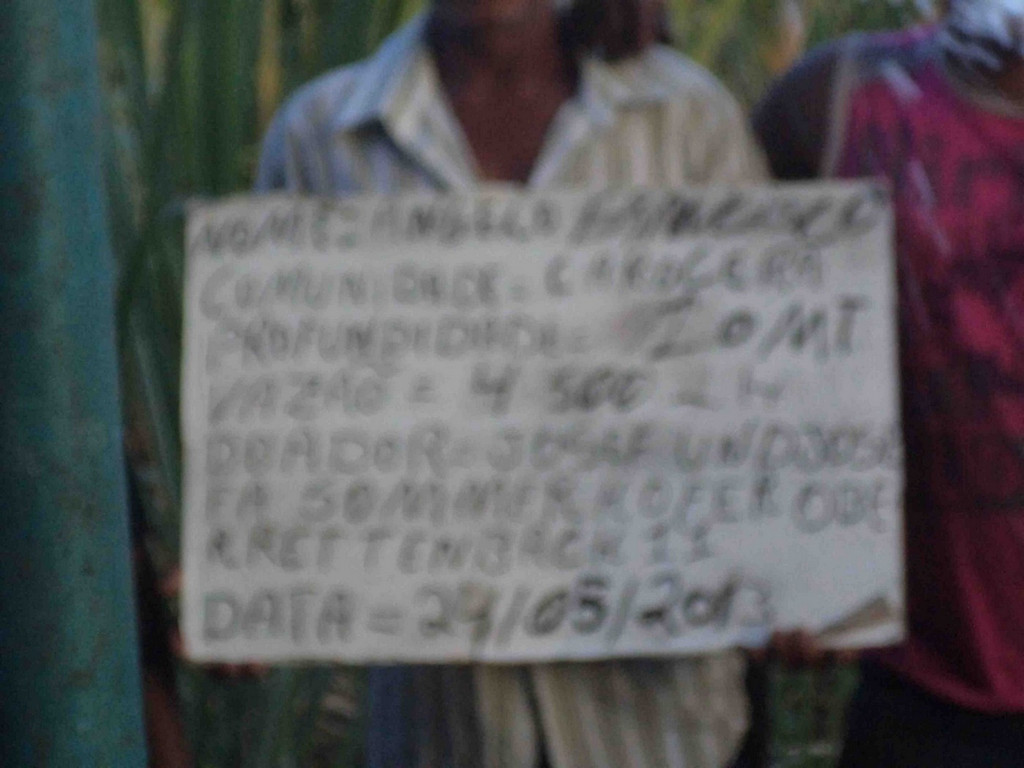 NOME: ANGELO
COMUNIDADE = CAROCEIRA
PROFUNDIDADE = 70/MT
VAZÃO = 4 500 - H
DOADOR = JOSEF UND JOSE
FA SOMMERKOFER ODE
RRETTENBACH II
DATA = 24/05/2013